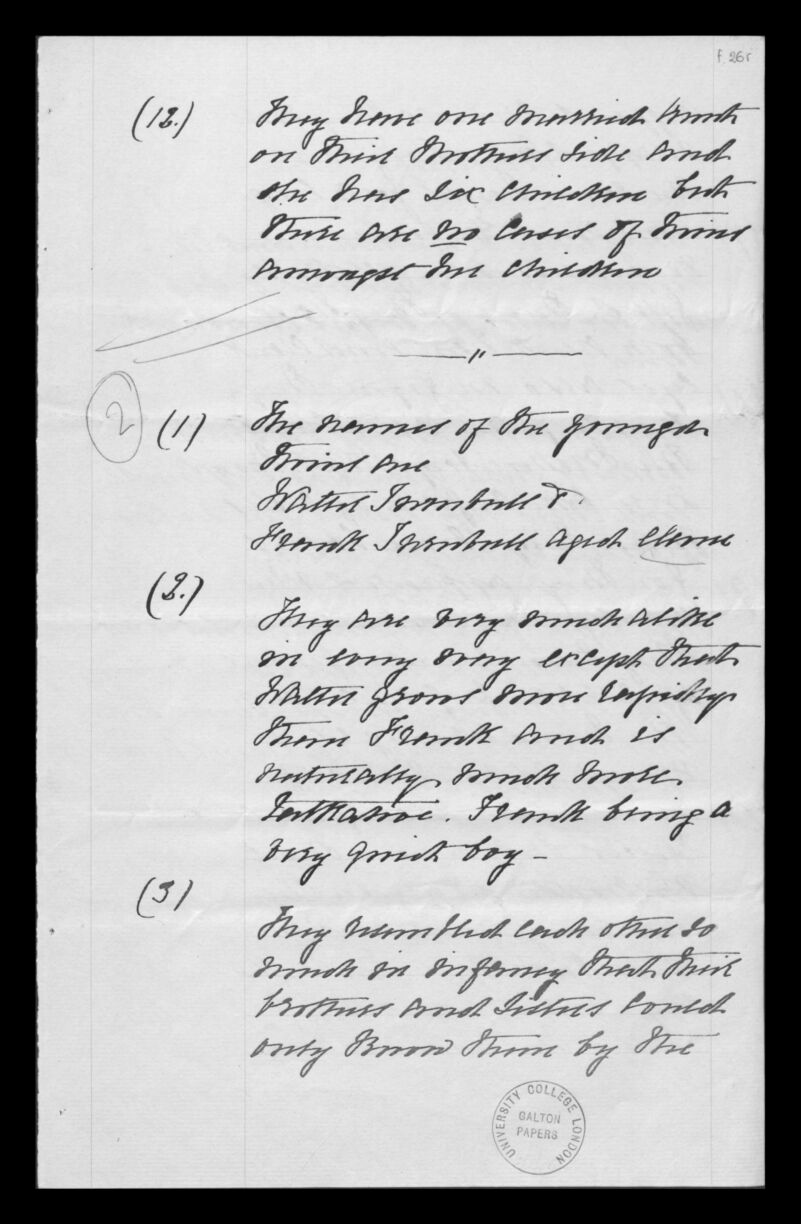 f. 26r
(12.) They have one married Aunt
on their Mothers side and
she has six children but
there are no cases of twins
amongst the children
2
(1) The names of the younger
twins are
Walter Turnbull &
Frank Turnbull aged eleven
(2.)
They are very much alike
in every way except that
Walter grows more rapidly
than Frank and is
naturally much more
talkative. Frank being a
very quiet boy -
(3)
They resembled each other so
much in infancy that their
brothers and sisters could
only know them by the
UNIVERSITY COLLEGE LONDON
GALTON
PAPERS